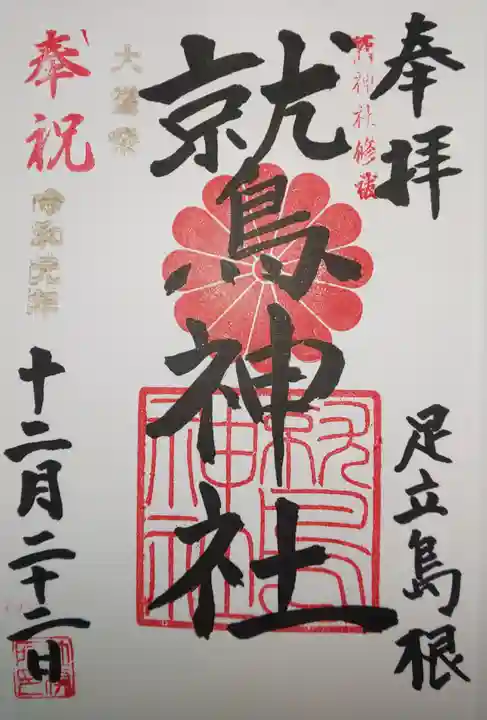 奉拝
足立島根
神社修
鷲神社
神社
大嘗祭
奉祝
令和元年
十二月二十二日